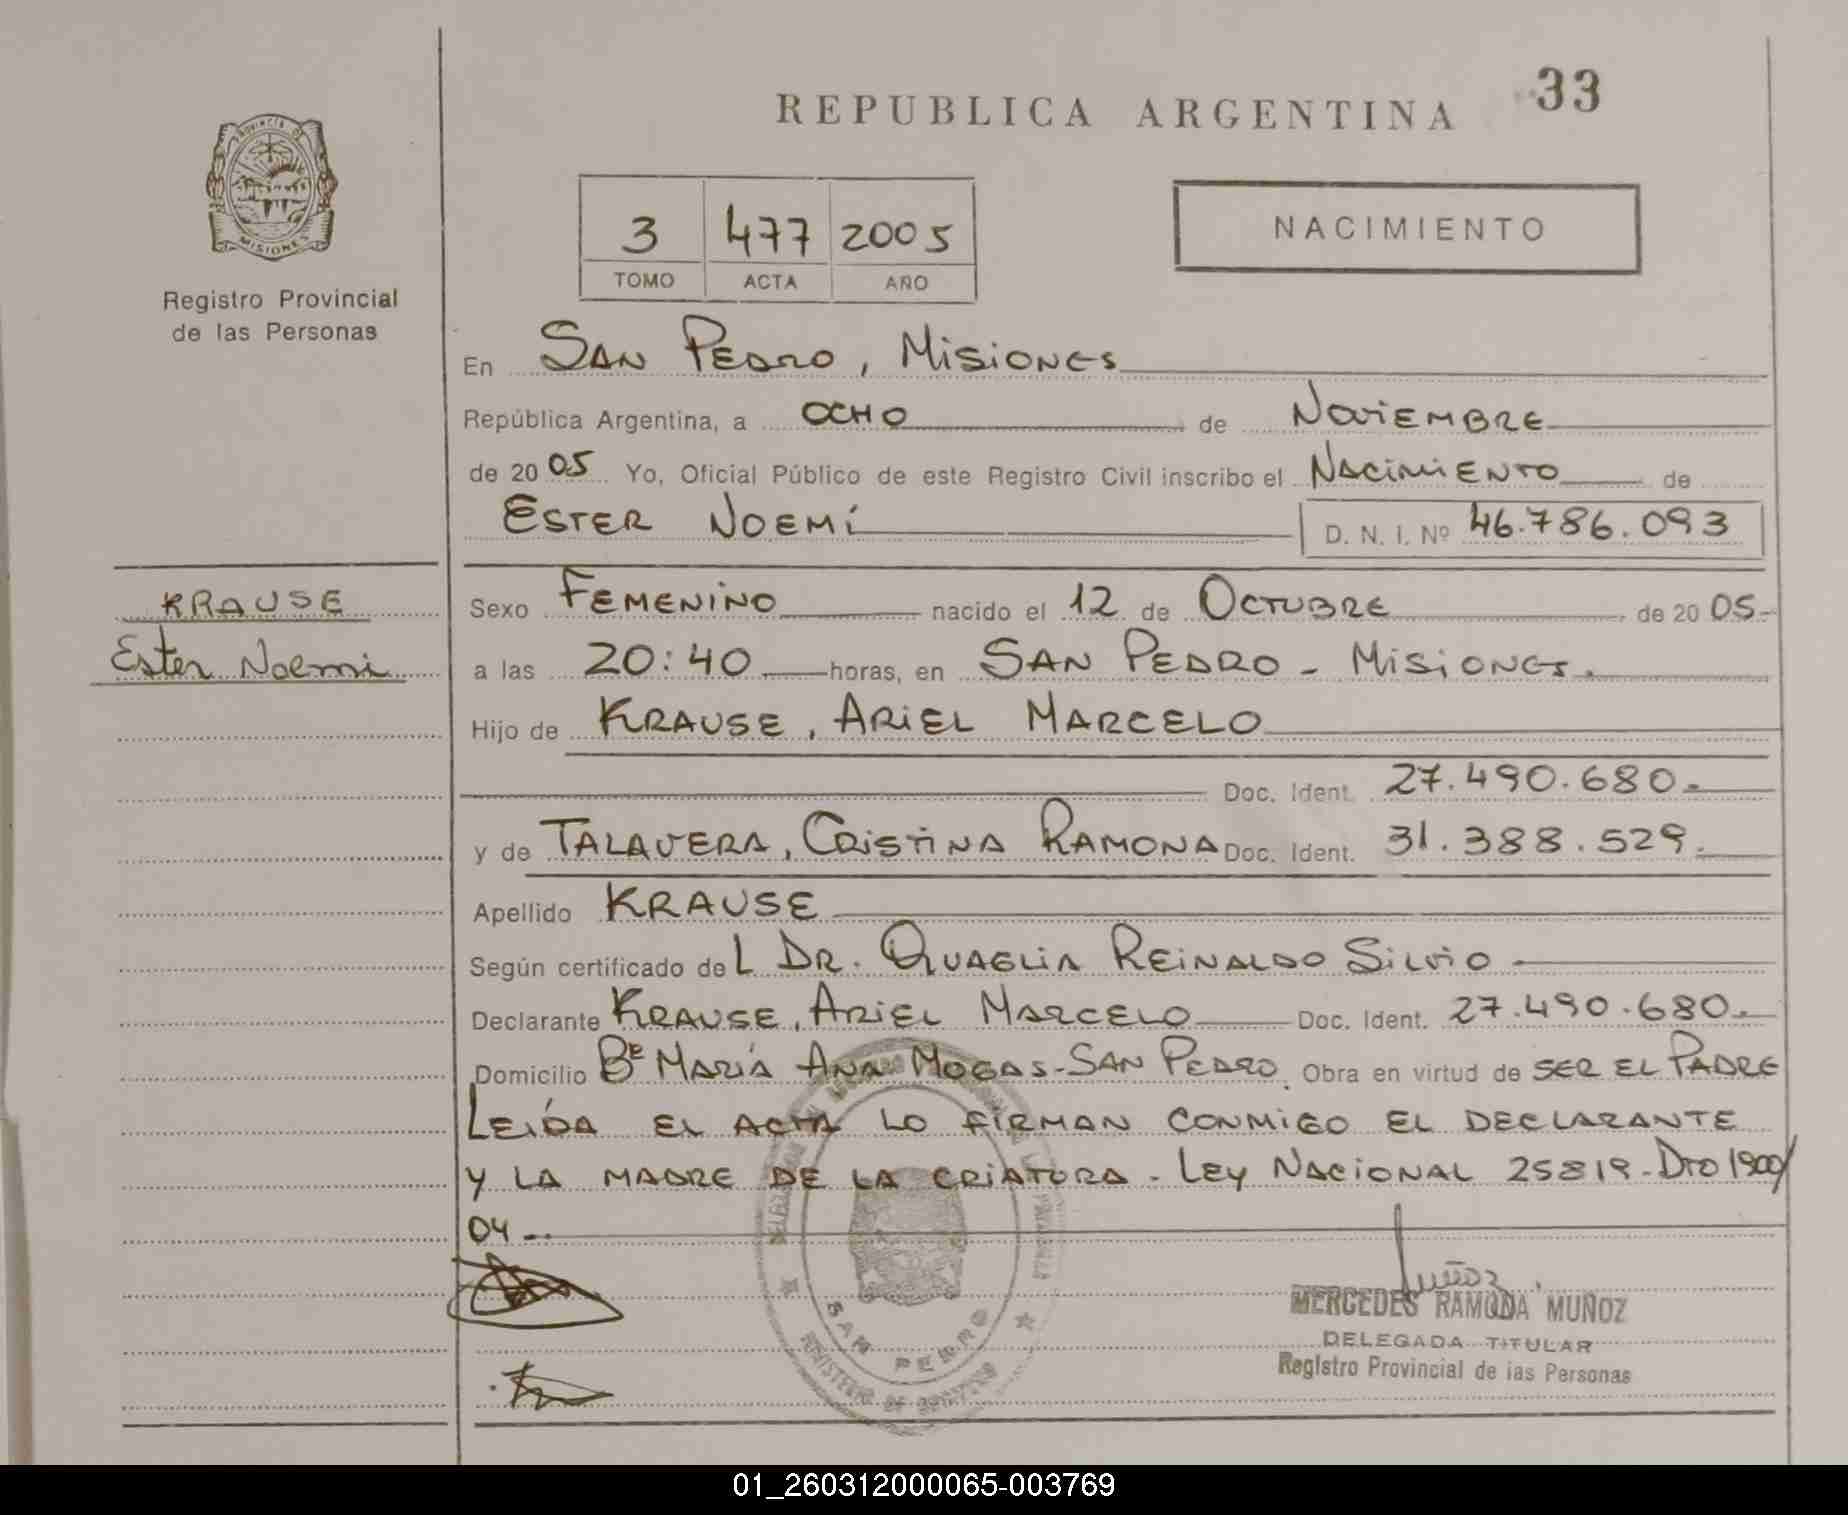 REPUBLICA ARGENTINA 33
PROVINCIA DE
MISIONES
Registro Provincial
de las Personas
3 477 2005
TOMO ACTA AÑO
NACIMIENTO
En SAN PEDRO, MISIONES
República Argentina, a OCHO de NOVIEMBRE
de 20 05 Yo, Oficial Público de este Registro Civil inscribo el NACIMIENTO de
ESTER NOEMÍ D. N. I. Nº 46.786.093
KRAUSE
Ester Noemi
Sexo FEMENINO nacido el 12 de OCTUBRE de 20 05-
a las 20:40 horas, en SAN PEDRO - MISIONES.
Hijo de KRAUSE, ARIEL MARCELO
Doc. Ident. 27.490.680.-
y de TALAVERA, CRISTINA RAMONA Doc. Ident. 31.388.529.
Apellido KRAUSE
Según certificado de L DR. QUAGLIA REINALDO SILVIO -
Declarante KRAUSE, ARIEL MARCELO Doc. Ident. 27.490.680.-
Domicilio Bº MARÍA ANA MOGAS-SAN PEDRO. Obra en virtud de SER EL PADRE
LEÍDA EL ACTA LO FIRMAN CONMIGO EL DECLARANTE
Y LA MADRE DE LA CRIATURA - LEY NACIONAL 25819-DTO 1900/
04 -.
SAN PEDRO
MINISTERIO DE
Muñoz
MERCEDES RAMONA MUÑOZ
DELEGADA TITULAR
Registro Provincial de las Personas
01_260312000065-003769